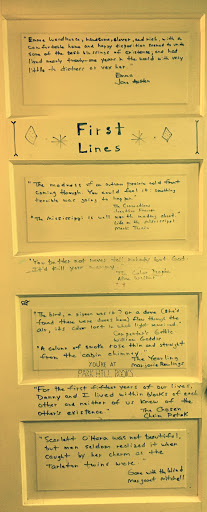 "Emma Woodhouse, handsome, clever, and rich, with a
comfortable home and happy disposition seemed to unite
some of the best blessings of existence; and had
lived nearly twenty-one years in the world with very
little to distress or vex her.
Emma
Jane Austen
First
Lines
"The madness of an autumn prairie cold front
coming through. You could feel it: something
terrible was going to happen.
The Corrections
Jonathan Franzen
"The Mississippi is well worth reading about."
Life on the Mississippi
Mark Twain
"You better not never tell nobody but God.
It'd kill your mammy."
The Color Purple
Alice Walker
"The bird, a pigeon was it? or a dove (she'd
found there were doves here) flew through the
air, its color lost in what light remained."
Carpenter's Gothic
William Gaddis
"A column of smoke rose thin and straight
from the cabin chimney.
The Yearling
Marjorie Rawlings
YOU'RE AT
PARK HILL BOOKS
"For the first fifteen years of our lives,
Danny and I lived within blocks of each
other and neither of us knew of the
other's existence."
The Chosen
Chaim Potok
"Scarlett O'Hara was not beautiful,
but men seldom realized it when
caught by her charm as the
Tarleton twins were."
Gone with the Wind
Margaret Mitchell